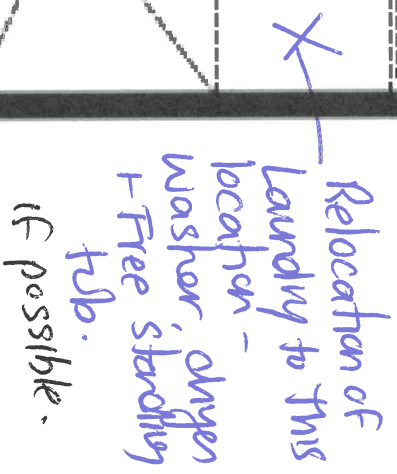 Relocation of
Laundry to this
location -
washer, dryer
+ Free standing
tub.
if possible.